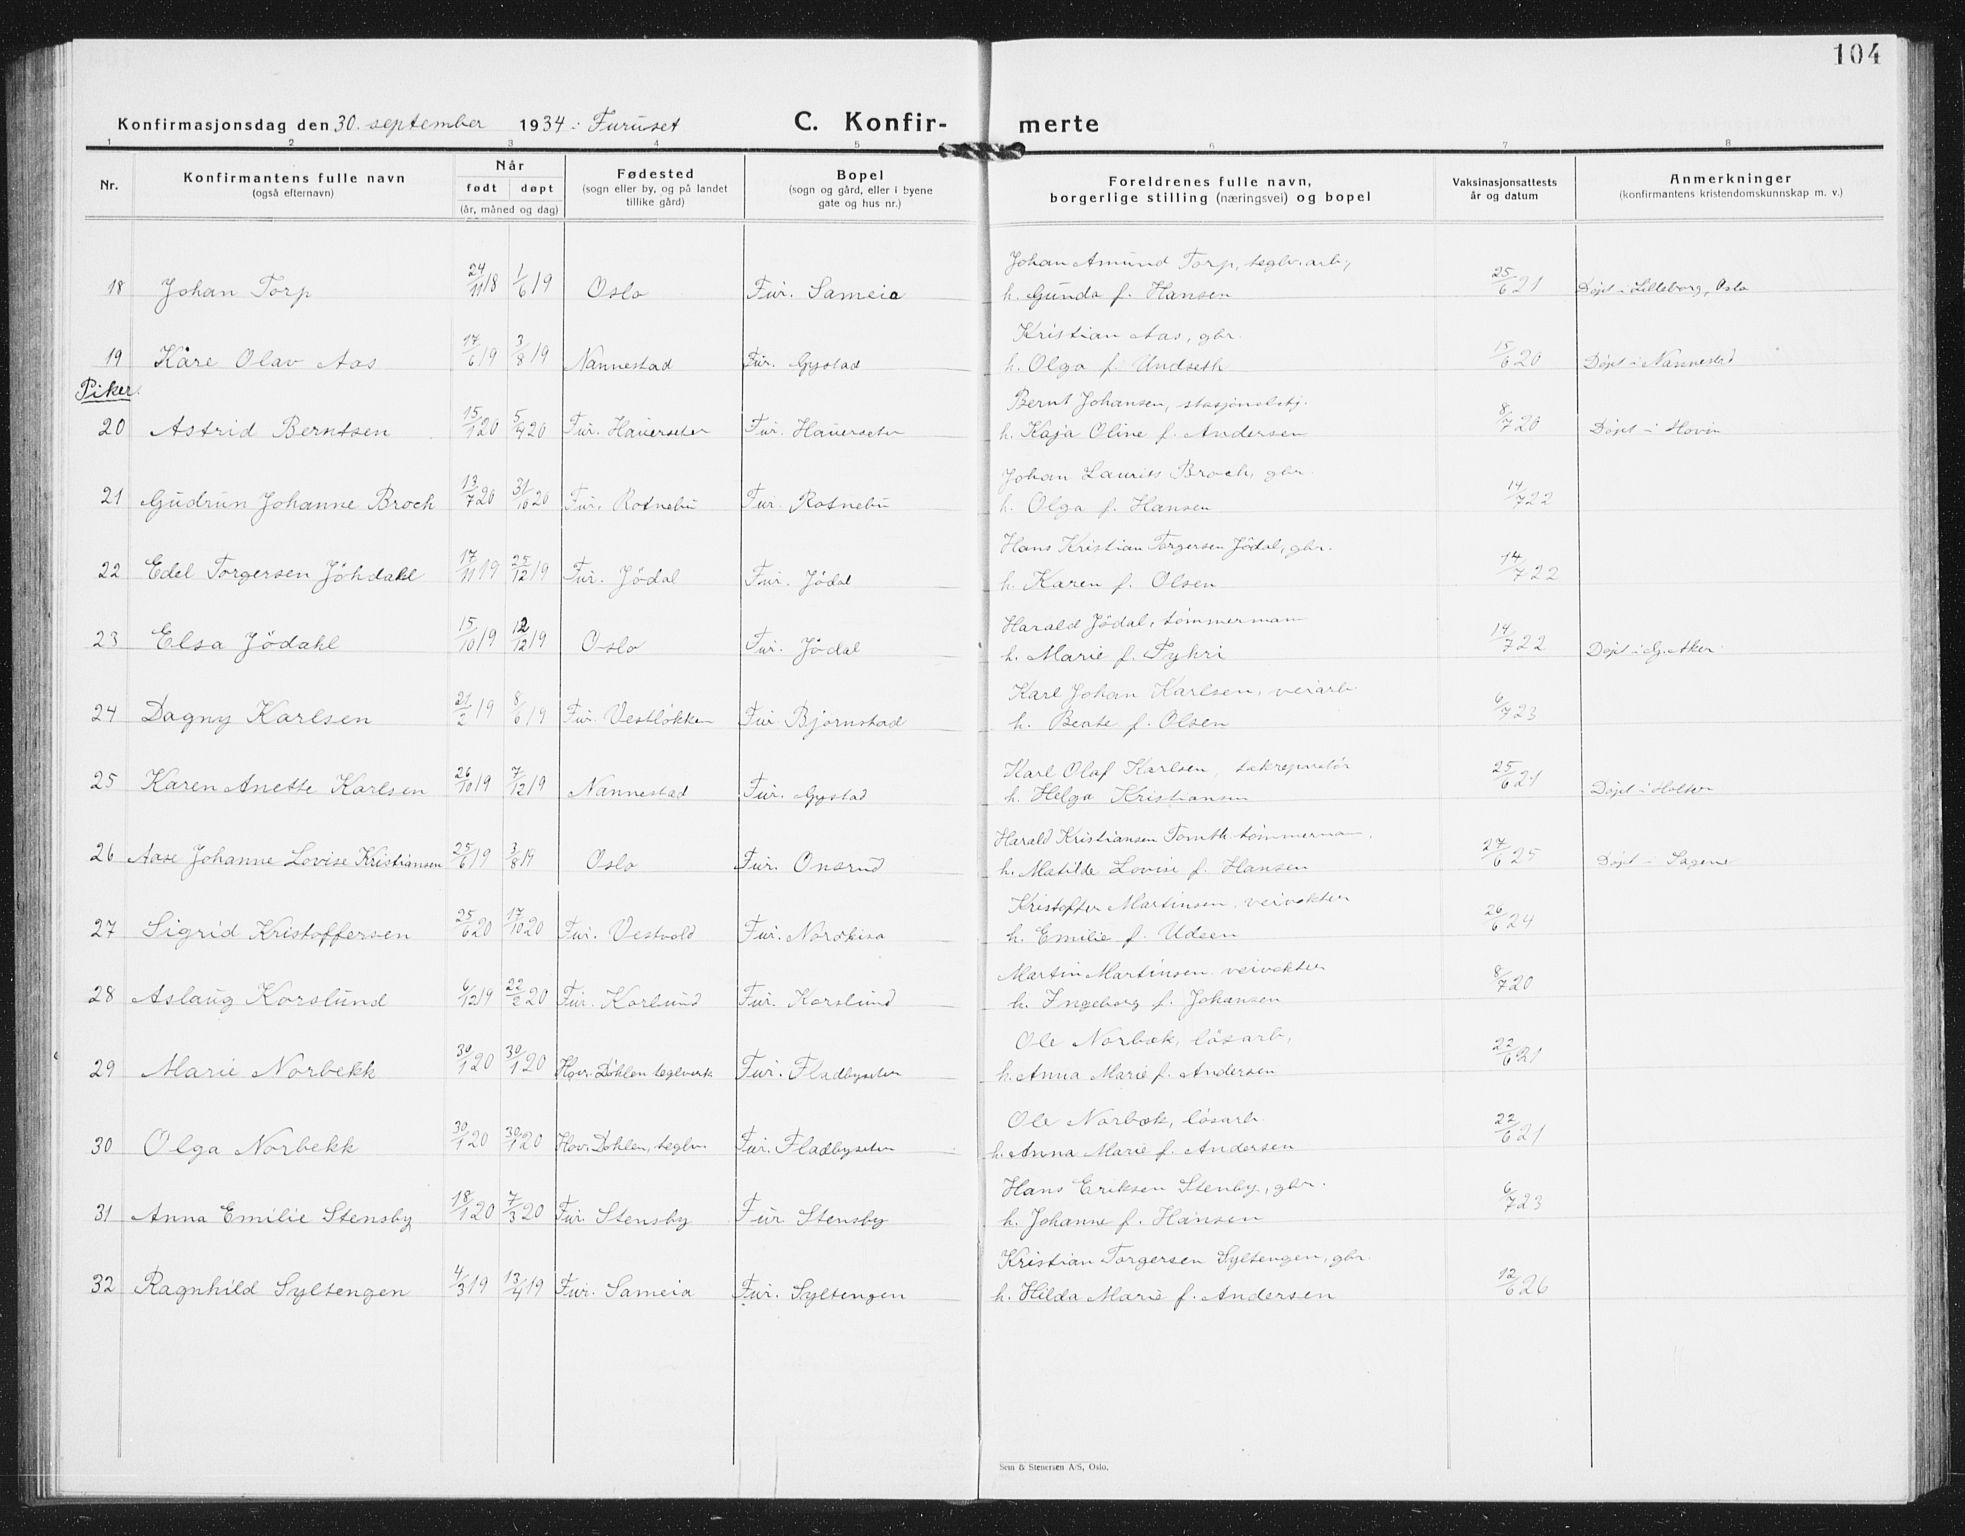 104
Konfirmasjonsdag den 30. september 1934 i Furuset C. Konfir- merte
1 2 3 4 5 6 7 8
Nr. Konfirmantens fulle navn (også efternavn) Når født døpt (år, måned og dag) Fødested (sogn eller by, og på landet tillike gård) Bopel (sogn og gård, eller i byene gate og hus nr.) Foreldrenes fulle navn, borgerlige stilling (næringsvei) og bopel Vaksinasjonsattests år og datum Anmerkninger (konfirmantens kristendomskunnskap m. v.)
Johan Amund Torp, teglv.arb,
18 Johan Torp 24/11 18 1/6 19 Oslo Fur. Sameia h. Gunda f. Hansen 25/6 21 Døpt i Lilleborg, Oslo
Kristian Aas, gbr.
19 Kåre Olav Aas 17/6 19 3/8 19 Nannestad Fur. Gystad h. Olga f. Undseth 15/6 20 Døpt i Nannestad
Piker.
Bernt Johansen, stasjonsbtj.
20 Astrid Berntsen 15/1 20 5/4 20 Fur. Hauerseter Fur. Hauerseter h. Kaja Oline f. Andersen 8/7 20 Døpt i Hovin
Johan Laurits Broch, gbr.
21 Gudrun Johanne Broch 13/7 20 31/10 20 Fur. Rotnebu Fur. Rotnebu h. Olga f. Hansen 14/7 22
Hans Kristian Torgersen Jödal, gbr.
22 Edel Torgersen Jöhdahl 17/11 19 25/12 19 Fur. Jödal Fur. Jödal h. Karen f. Olsen 14/7 22
Harald Jödal, tömmermann
23 Elsa Jödahl 15/10 19 12/12 19 Oslo Fur. Jödal h. Marie f. Fyhri 14/7 22 Døpt i G. Aker
Karl Johan Karlsen, veiarb.
24 Dagny Karlsen 21/2 19 8/6 19 Fur. Vestlökken Fur. Bjørnstad h. Beate f. Olsen 6/7 23
Karl Olaf Karlsen, takreparatör
25 Karen Anette Karlsen 26/10 19 7/12 19 Nannestad Fur. Gystad h. Helga Kristiansen 25/6 21 Døpt i Holter
Harald Kristiansen Tomth. tömmermann.
26 Aase Johanne Lovise Kristiansen 25/6 19 3/8 19 Oslo Fur. Onsrud h. Matilde Lovise f. Hansen 27/6 25 Døpt i Sagene
Kristoffer Martinsen, veivokter
27 Sigrid Kristoffersen 25/6 20 17/10 20 Fur. Vestvold Fur. Nordkisa h. Emilie f. Udeen 26/6 24
Martin Martinsen veivokter
28 Aslaug Korslund 6/12 19 22/2 20 Fur. Korslund Fur. Korslund h. Ingeborg f. Johansen 8/7 20
Ole Norbæk, lösarb,
29 Marie Norbekk 30/1 20 30/1 20 Hov. Döhlen teglverk Fur. Fladbyseter h. Anna Marie f. Andersen 22/6 21
Ole Norbæk, lösarb.
30 Olga Norbekk 30/1 20 30/1 20 Hov. Döhlen, teglv. Fur. Fladbyseter h. Anna Marie f. Andersen 22/6 21
Hans Eriksen Stenby, gbr.
31 Anna Emilie Stensby 18/1 20 7/3 20 Fur. Stensby Fur. Stensby h. Johanne f. Hansen 6/7 23
Kristian Torgersen Syltengen, gbr.
32 Ragnhild Syltengen 4/3 19 13/4 19 Fur. Sameia Fur. Syltengen h. Hilda Marie f. Andersen 12/6 26
Sem & Stenersen A/S, Oslo.